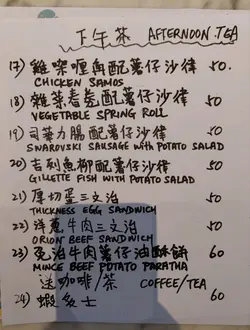 下午茶 AFTERNOON TEA
17) 雞咖喱角配薯仔沙律 50.
CHICKEN SAMOS
18) 雜菜春卷配薯仔沙律 50
VEGETABLE SPRING ROLL
19) 司華力腸配薯仔沙律 50
SWAROVSKI SAUSAGE with POTATO SALAD
20) 吉列魚柳配薯仔沙律 50
GILLETTE FISH WITH POTATO SALAD
21) 厚切蛋三文治 50
THICKNESS EGG SANDWICH
22) 洋蔥牛肉三文治 50
ORION BEEF SANDWICH
23) 免治牛肉薯仔油酥餅 60
MINCE BEEF POTATO PARATHA
送咖啡/茶 COFFEE/TEA
24) 蝦多士 60